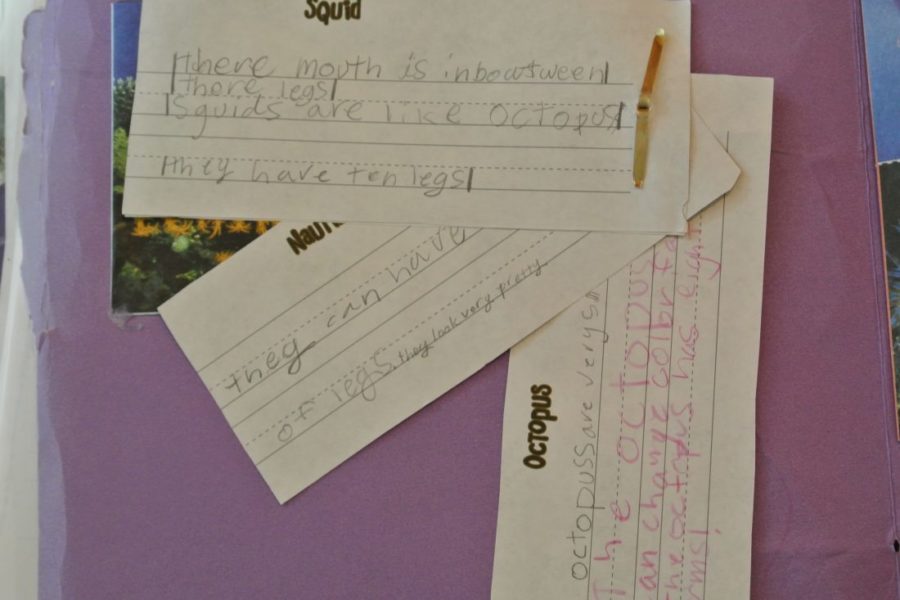 Squid
there mouth is inbowtween
there legs
Squids are like octopus
they have ten legs
they can have
of legs. they look very pretty.
Octopus
octopuss are very
The octopus
can change color
the octopus has eigh
rms!